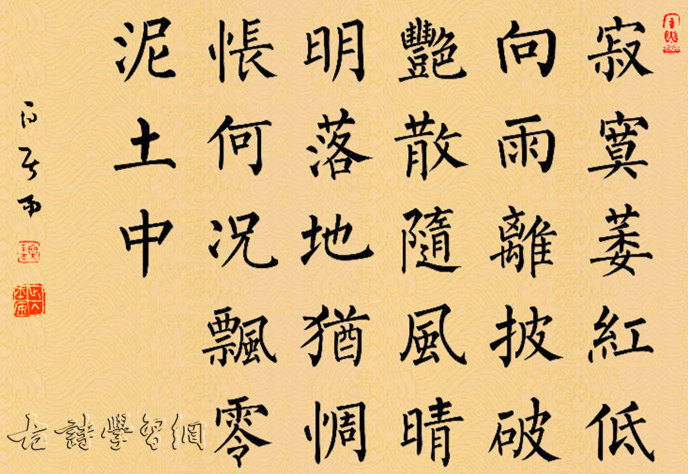 寂寞萎紅低
向雨離披破
豔散隨風晴
明落地猶惆
悵何況飄零
泥土中
白居易
古詩學習網